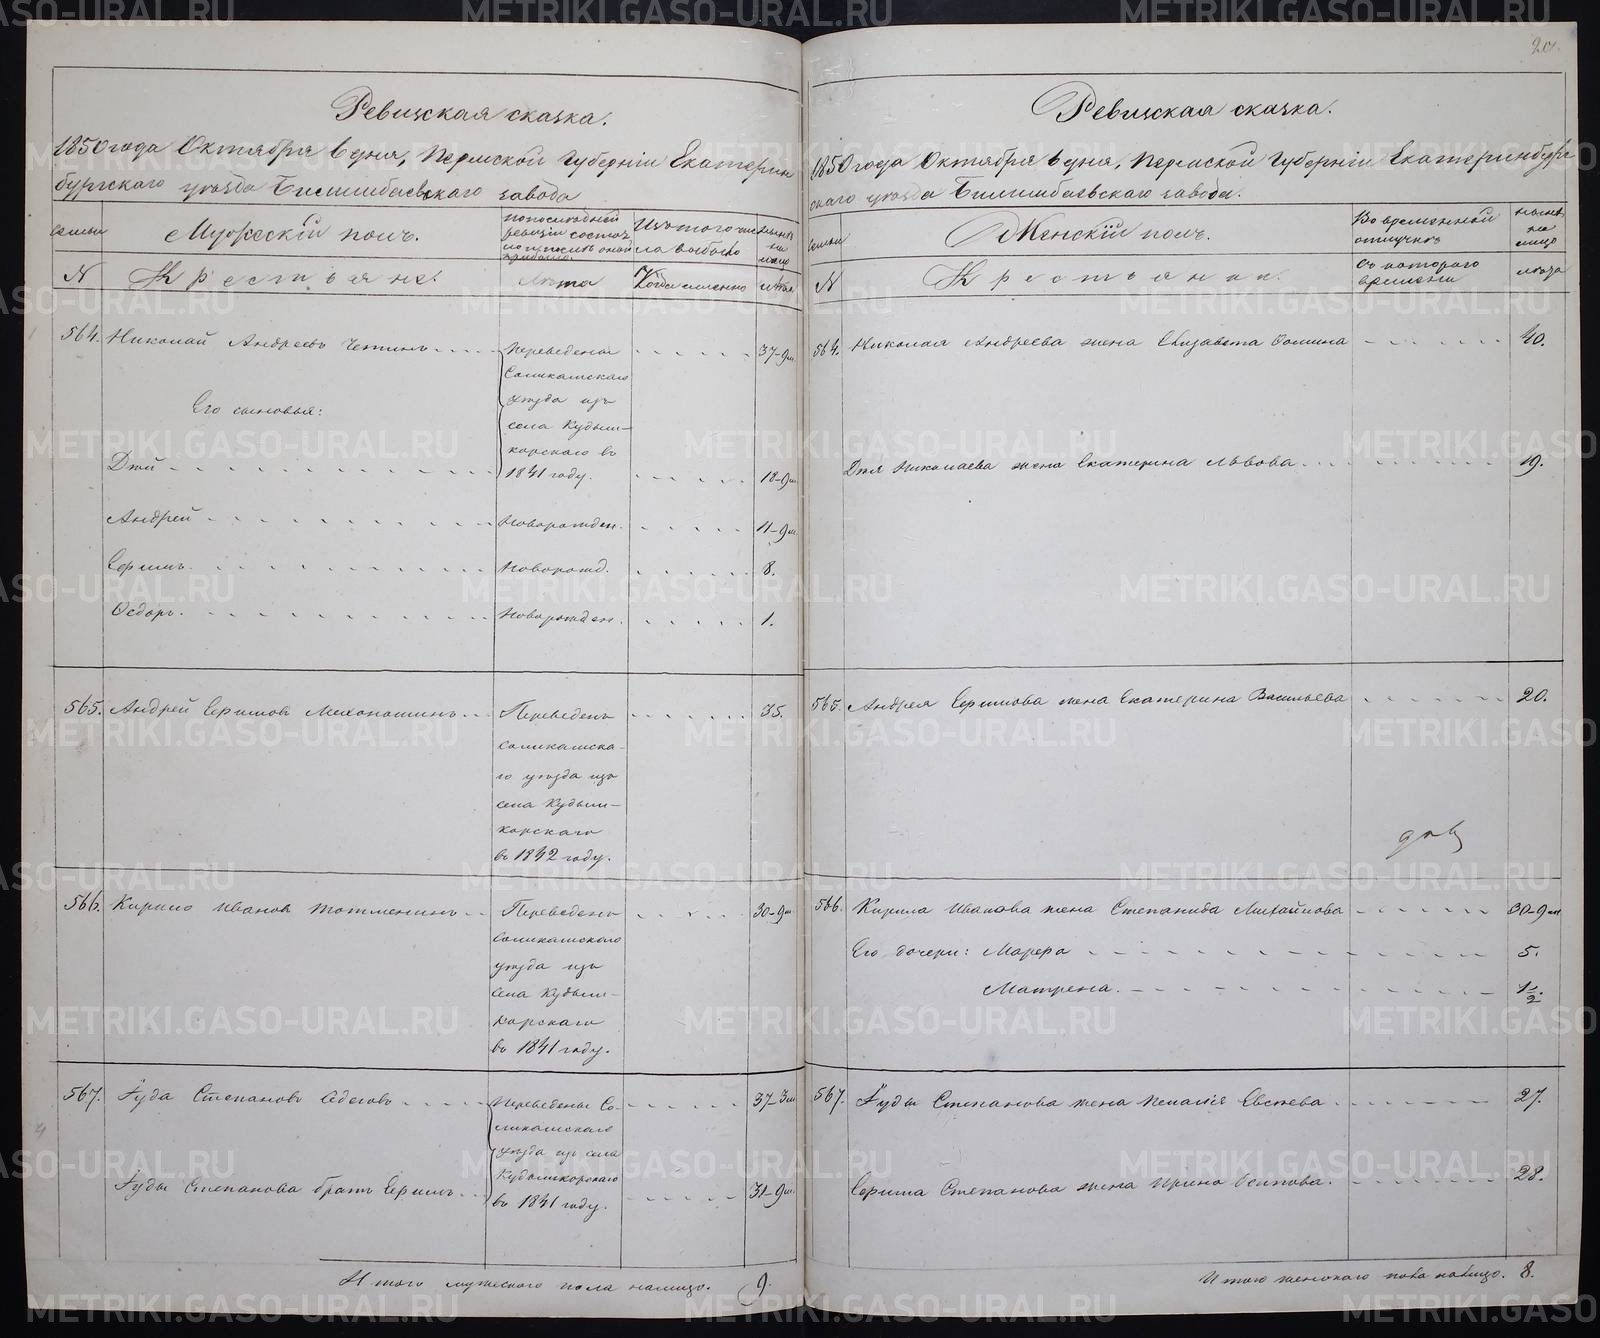 20.
Ревизская сказка.
1850 года Октября 6 дня, Пермской губерніи Екатерин
бургскаго уѣзда Билимбаевскаго завода
семьи
Мужескій полъ.
По последней ревизіи состояло и послѣ оной прибыло
Изъ того числа выбыло
нынѣ на лицо
N
Крестьяне.
Лѣта
Когда именно
лѣта
564. Николай Андреевъ Четинъ
Переведены
Соликамскаго
уѣзда изъ
села Кудым-
корскаго въ
1841 году.
37-9м
Его сыновья:
Дій
18-9м
Андрей
Новорожден.
11-9м
Ефимъ
Новорожд.
8.
Ѳедоръ
Новорожден.
1.
565. Андрей Ефимовъ Мехоношинъ
Переведенъ
Соликамска-
го уѣзда изъ
села Кудым-
корскаго
въ 1842 году.
35.
566. Кирило Ивановъ Тотменинъ
Переведенъ
Соликамскаго
уѣзда изъ
села Кудым-
корскаго
въ 1841 году.
30-9м
567. Іуда Степановъ
Переведены Со-
ликамскаго
уѣзда изъ села
Кудымкорскаго
въ 1841 году.
37-3м
Іуды Степанова братъ Ефимъ
31-9м
Итого мужескаго пола налицо. 9.
Ревизская сказка.
1850 года Октября 6 дня, Пермской губерніи Екатеринбург
скаго уѣзда Билимбаевскаго завода.
семьи
Женскій полъ.
Во временной отлучкѣ
нынѣ на лицо
N
Крестьянки.
съ котораго времени
лѣта
564. Николая Андреева жена Елизавета Фомина
40.
Дія Николаева жена Екатерина Львова
19.
565. Андрея Ефимова жена Екатерина Васильева
20.
566. Кирила Иванова жена Степанида Михайлова
30-9м
Его дочери: Марфа
5.
Матрена
1/2
567. Іуды Степанова жена Пелагія
27.
Ефима Степанова жена Ирина Осипова.
28.
Итого женскаго пола налицо. 8.
METRIKI.GASO-URAL.RU